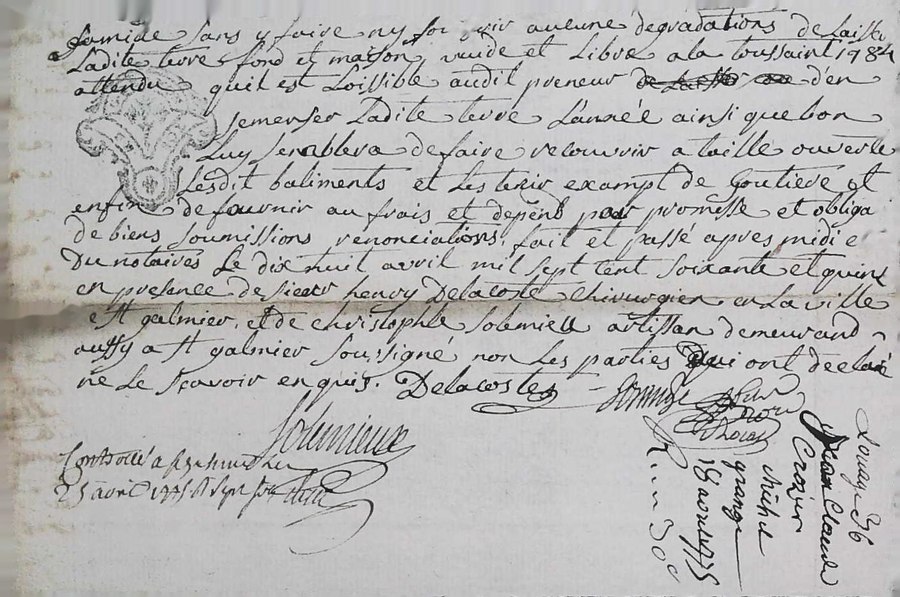 famide sans y faire ny souffrir aucune degradations de laisser
Ladite terre fond et maison vuide et Libre a la toussaint 1784
attendu quil est Loissible audit preneur den
semenser Ladite terre L'année ainsi que bon
Luy senablera de faire recouvrir a taille ouverte
Lesdit batiments et les tenir exampt de Goutiere et
enfin de fournir au frais et depent par promesse et obliga
de biens soumissions renonciations, fait et passé apres midi e
Du notaires Le dix huit avril mil sept cent soixante et quinz
en presence de sieur henry Delacoste Chirurgien en La ville
e St galmier, et de christophle solemieu artissan demeurand
aussy a St galmier soussigné non les parties qui ont declaré
ne Le scavoir enquis. Delacoste
Solemieux
Controllé a
25 avril 1775
Louage 36
Jean Claude
Crozier
Michel
grange
18 avril 1775